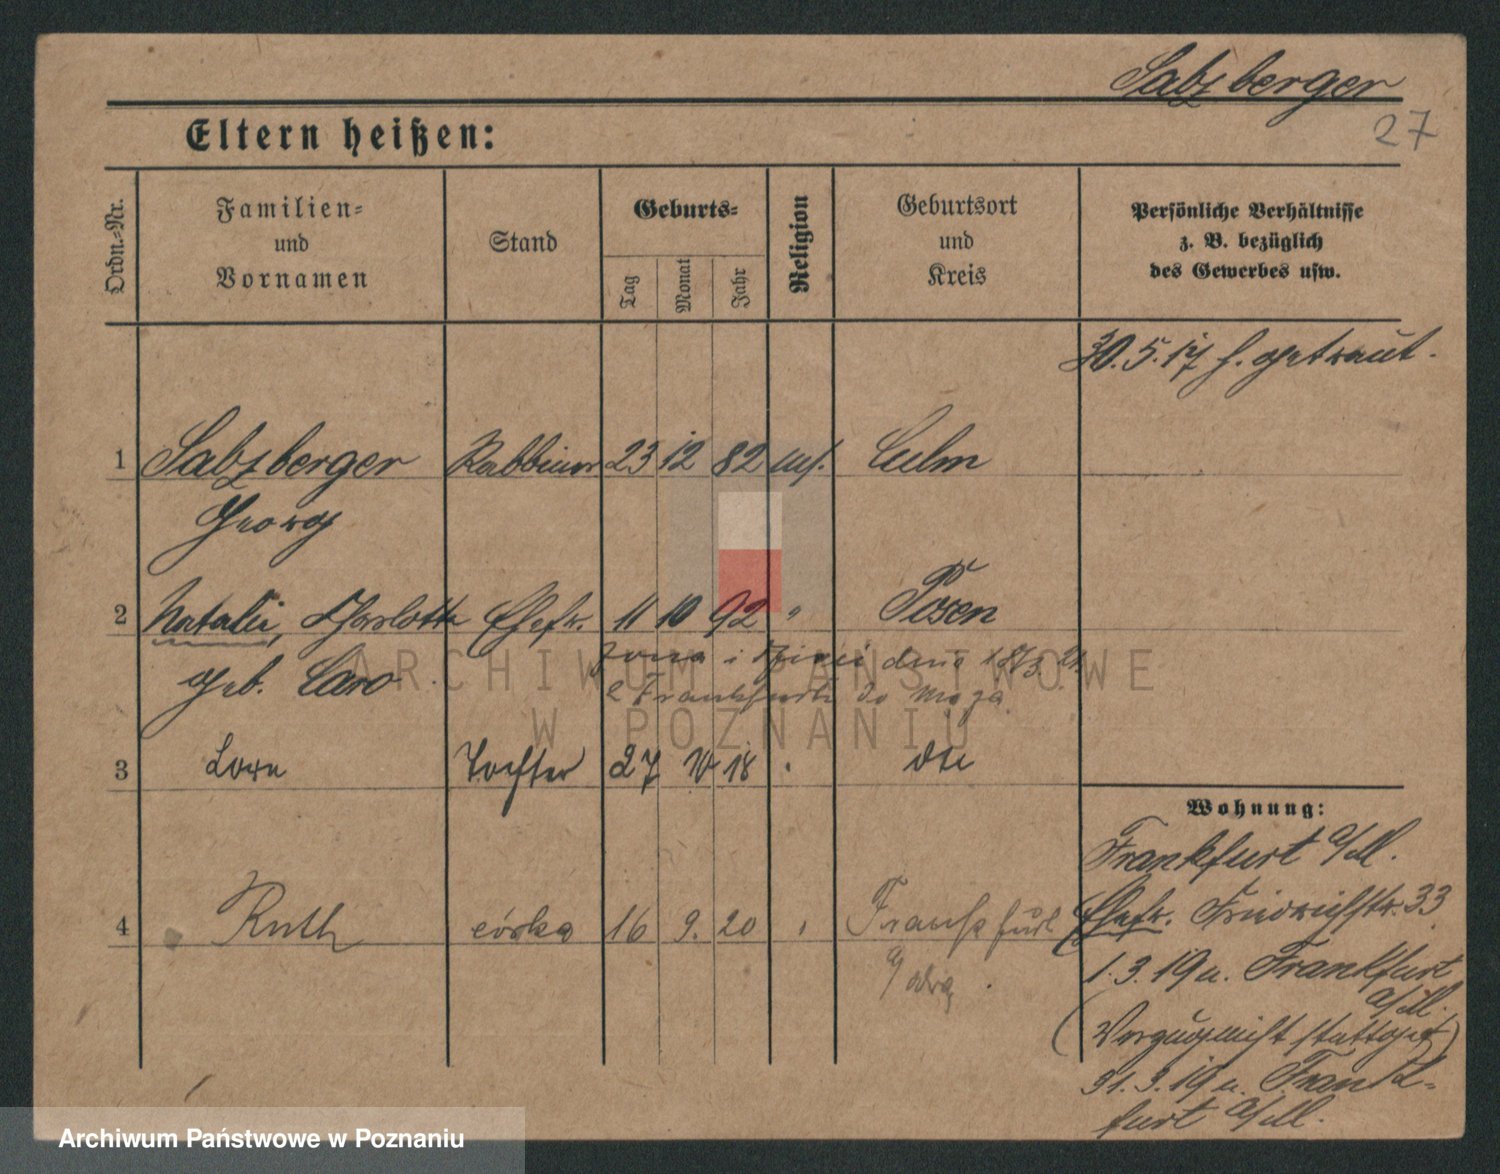 Salzberger
27
Eltern heißen:
Ordn.-Nr.
Familien- und Vornamen
Stand
Geburts-
Tag
Monat
Jahr
Religion
Geburtsort und Kreis
Persönliche Verhältnisse
z. B. bezüglich
des Gewerbes usw.
30.5.17 h. getraut.
1 Salzberger Rabbiner 23 12 82 mos. Culm
Georg
2 Natalie, Charlotte Ehefr. 11 10 92 " Posen
geb. Caro
żona i dzieci dnia 18/3 21
z Frankfurtu do męża
ARCHIWUM PAŃSTWOWE
W POZNANIU
3 Lore Tochter 27 IV 18 " dto
Wohnung:
Frankfurt a/M.
Ehefr. Friedrichstr. 33
4 Ruth córka 16 9. 20 " Frankfurt
a/Odrą
1.3.19 n. Frankfurt
a/M.
(Verzug nicht stattgef)
31.3.19 n. Frank-
furt a/M.
Archiwum Państwowe w Poznaniu